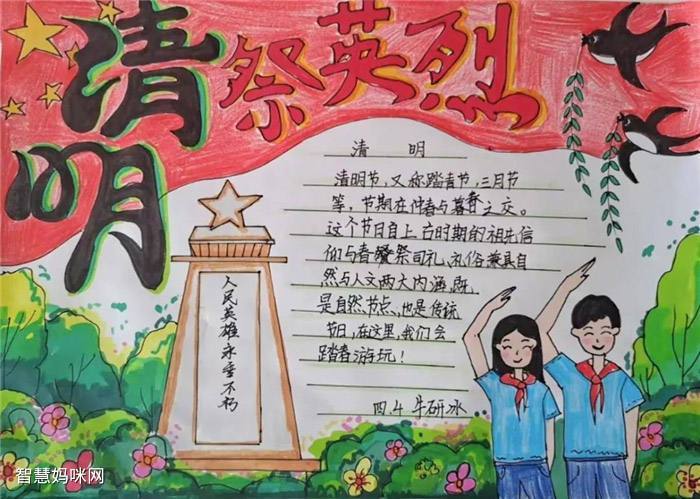 清明
祭英烈
清 明
清明节,又称踏青节,三月节
等,节期在仲春与暮春之交。
这个节日自上古时期的祖先信
仰与春祭司礼、礼俗兼具自
然与人文两大内涵,既
是自然节点,也是传统
节日,在这里,我们会
踏春游玩!
四.4 牛研冰
人民英雄永垂不朽
智慧妈咪网